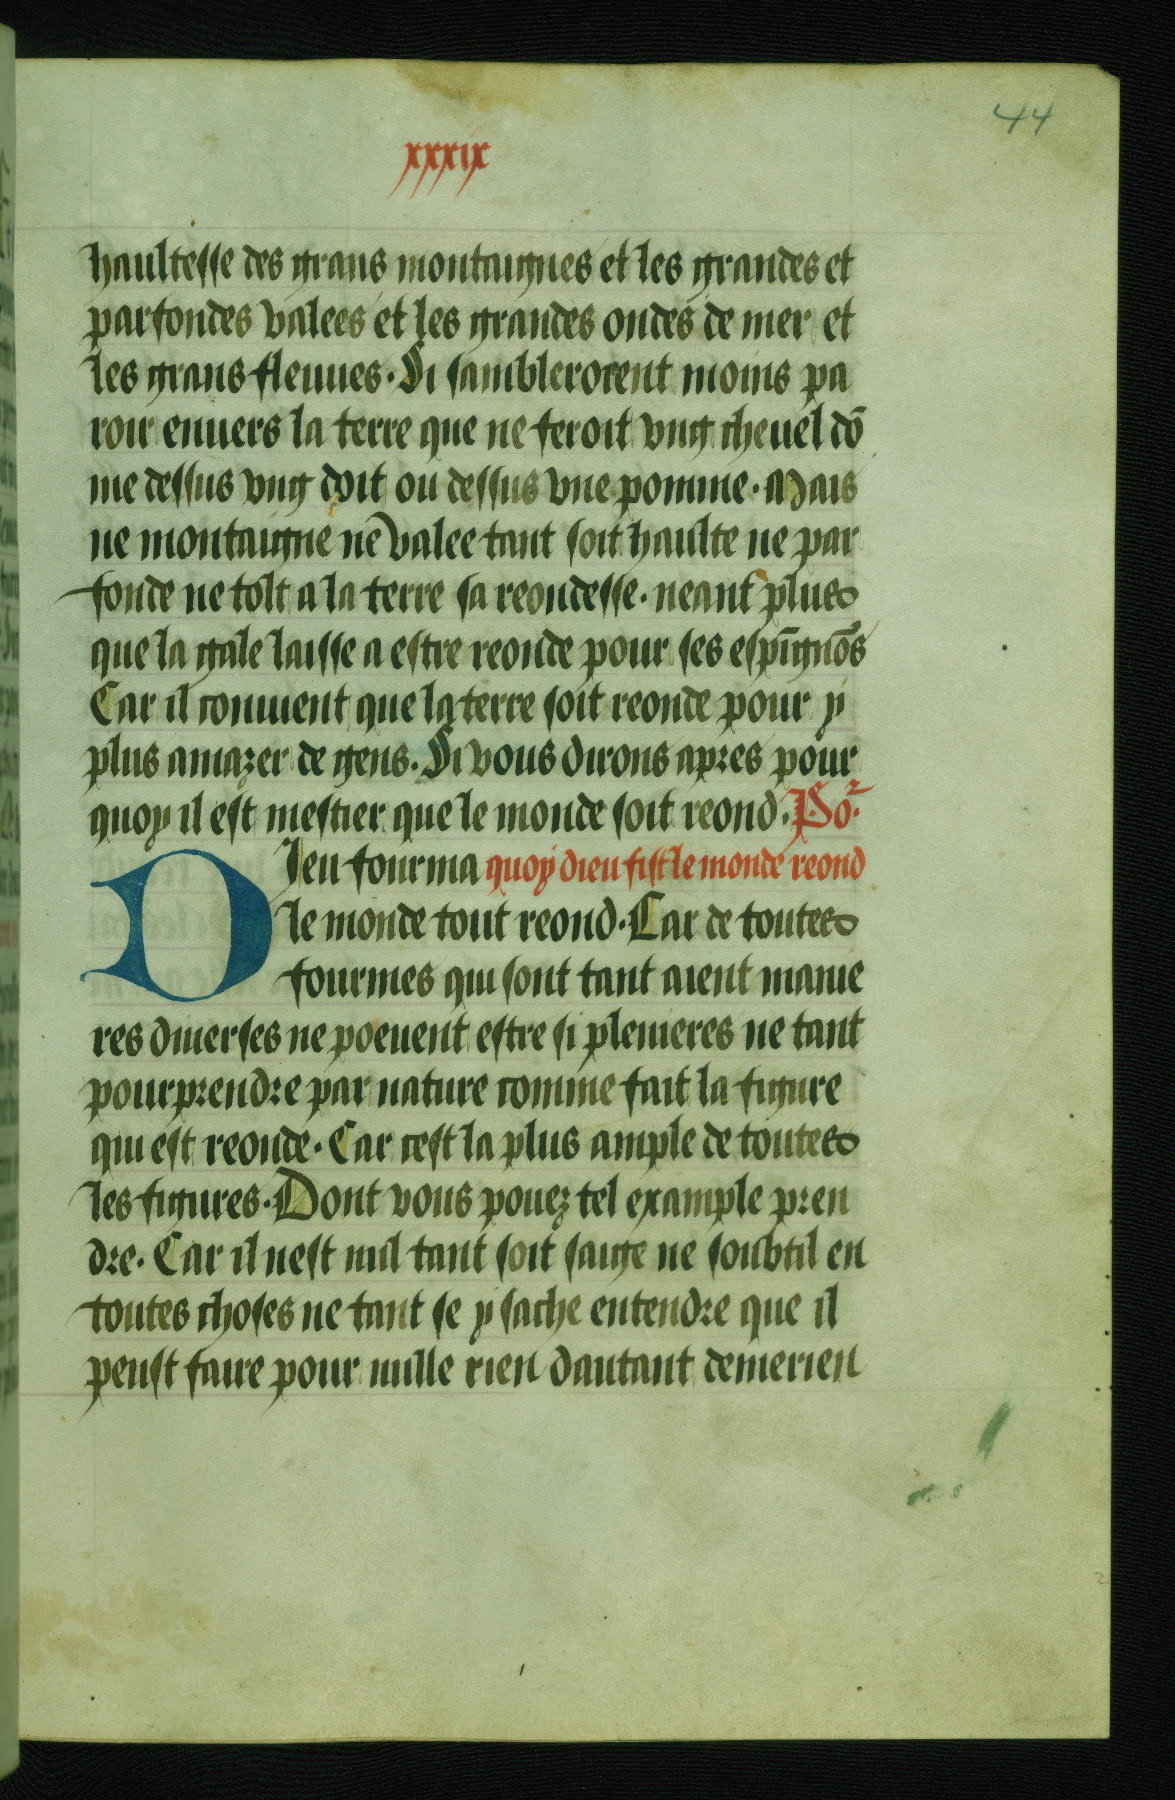 44
xxxix
haultesse des grans montaignes et les grandes et
parfondes valees et les grandes ondes de mer et
les grans fleuues. Si sambleroient moins pa
roir enuers la terre que ne feroit vng cheuel dō
me dessus vng doit ou dessus vne pomme. Mais
ne montaigne ne valee tant soit haulte ne par
fonde ne tolt a la terre sa reondesse. neant plus
que la gale laisse a estre reonde pour ses espīgnōs
Car il conuient que la terre soit reonde pour y
plus amazer de gens. Si vous dirons apres pour
quoy il est mestier que le monde soit reond. Po.r
Dieu fourma quoy dieu fist le monde reond
le monde tout reond. Car de toutes
fourmes qui sont tant aient manie
res diuerses ne poeuent estre si plenieres ne tant
pourprendre par nature comme fait la figure
qui est reonde. Car cest la plus ample de toutes
les figures. Dont vous pouez tel example pren
dre. Car il nest nul tant soit saige ne soubtil en
toutes choses ne tant se y sache entendre que il
peust faire pour nulle rien dautant demerien